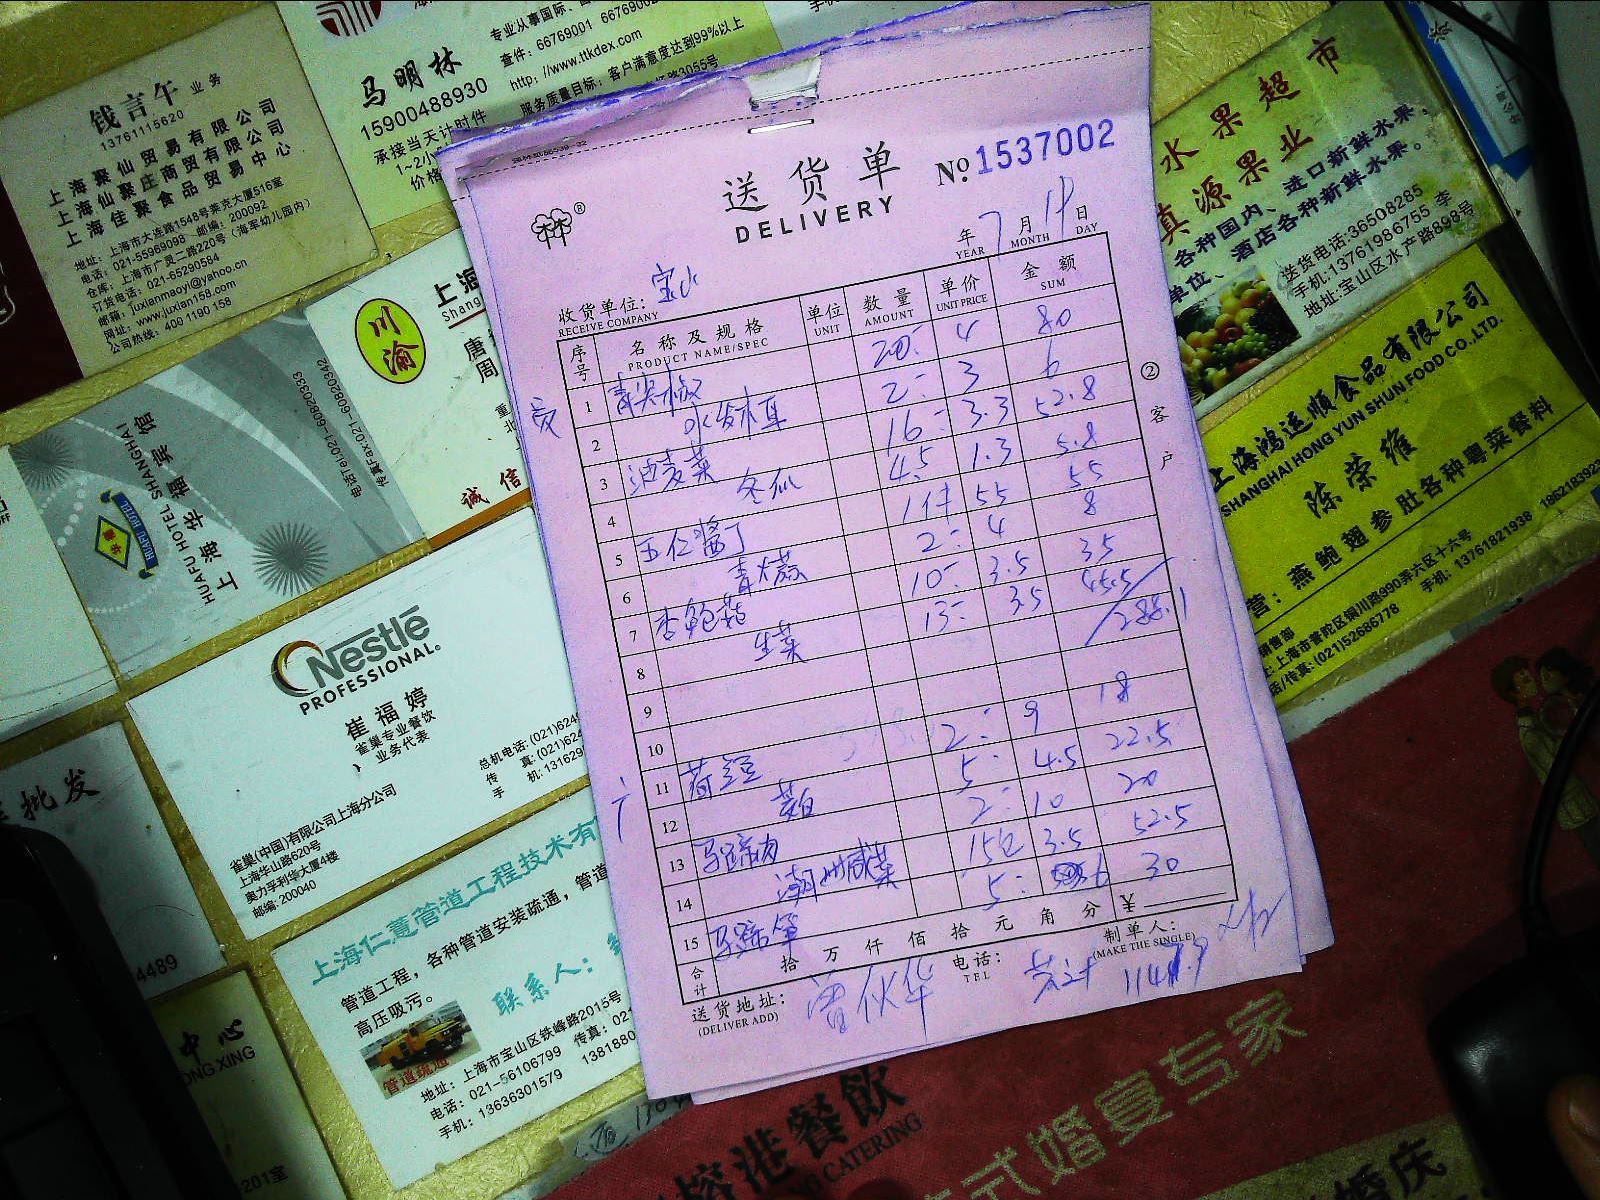 钱言午 业务
13761115620
上海聚仙贸易有限公司
上海仙聚庄商贸有限公司
上海佳聚食品贸易中心
地址：上海市大连路1548号莱克大厦516室
电话：021-55969098 邮编：200092
仓库：上海市广灵二路220号（海军幼儿园内）
订货电话：021-65290584
邮箱：juxianmaoyi@yahoo.cn
网址：www.juxian158.com
公司热线：400 1190 158
专业从事国际、
查件：66769001
http://www.ttkdex.com
服务质量目标：客户满意度达到99%以上
马明林
15900488930
承接当天计时件
川渝
上海
诚信
HUAFU HOTEL SHANGHAI
上海华福宾馆
电话Tel:021-60820333
传真Fax:021-60820342
Nestlé
PROFESSIONAL.
崔福婷
雀巢专业餐饮
业务代表
雀巢(中国)有限公司上海分公司
上海华山路620号
奥力孚利华大厦4楼
邮编: 200040
总机电话: (021)624
传 真: (021)624
手 机: 13162
批发
4489
上海仁薏管道工程技术有
管道工程，各种管道安装疏通，管道
高压吸污。
联系人：
管道疏通
地址：上海市宝山区铁峰路2015号
电话：021-56106799 传真：021
手机：13636301579 1381880
中心
ONG XING
201室
送货单
DELIVERY
No. 1537002
年 YEAR 7 月 MONTH 19 日 DAY
收货单位： 宝山
RECEIVE COMPANY
序号 名称及规格 单位 数量 单价 金额
PRODUCT NAME/SPEC UNIT AMOUNT UNIT PRICE SUM
1 青尖椒 20 4 80
2 水发木耳 2 3 6
3 油麦菜 16 3.3 52.8
4 冬瓜 4.5 1.3 5.8
5 五仁酱丁 1件 55 55
6 青大蒜 2 4 8
7 杏鲍菇 10 3.5 35
8 生菜 13 3.5 45.5
288.1
9
10
11 荷兰豆 2 9 18
12 茭白 5 4.5 22.5
13 马蹄肉 2 10 20
14 潮州咸菜 15包 3.5 52.5
15 马蹄笋 5 6 30
合计 拾 万 仟 佰 拾 元 角 分 ￥
送货地址：
(DELIVER ADD)
电话：
TEL
制单人：
(MAKE THE SINGLE)
② 客户
水果超市
真源果业
各种国内、进口新鲜水果，
单位、酒店各种新鲜水果。
送货电话:36508285
手机:13761986755 李
地址:宝山区水产路898号
上海鸿运顺食品有限公司
SHANGHAI HONG YUN SHUN FOOD CO.,LTD.
陈荣维
营：燕鲍翅参肚各种粤菜餐料
销售部
上海市普陀区铜川路990弄六区十六号
话/传真: (021)52686778 手机：13761821938
港餐飲
CATERING
式婚宴专家
婚庆